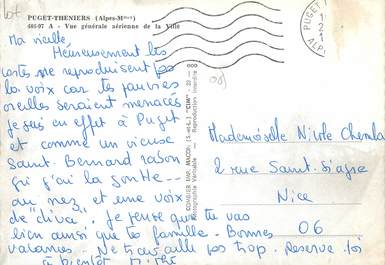 PUGET-THENIERS (Alpes-Mmes)
466-97 A - Vue générale aérienne de la Ville
Ma vieille,
Heureusement les
cartes ne reproduisent pas
la voix car tes pauvres
oreilles seraient menacées
je suis en effet à Puget
et comme un vieux
Saint. Bernard
qui j'ai la goutte --
au nez et une voix
de "diva". Je pense que tu vas
bien ainsi que ta famille. Bonnes
vacances. Ne travaille pas trop. Reserve toi
à bientôt
COMBIER IMP. MACON (S.-&-L.) "CIM"
Photographie Véritable - Reproduction Interdite
Mademoiselle Nicole
2 rue Saint.
Nice
06
PUGET-T
ALP